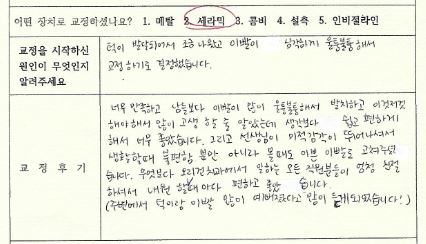 어떤 장치로 교정하셨나요? 1. 메탈 2. 세라믹 3. 콤비 4. 설측 5. 인비절라인
교정을 시작하신
원인이 무엇인지
알려주세요
턱이 발달되어서 오래 나왔고 이빨이 심각하게 울퉁불퉁해서
교정하기로 결정했습니다.
교 정 후 기
너무 만족하고 남들보다 이빨이 많이 울퉁불퉁해서 발치하고 이것저것
해야해서 많이 고생 할 줄 알았는데 생각보다 쉽고 편하게
해서 너무 좋았습니다. 그리고 선생님이 미적감각이 뛰어나셔서
생활할때 불편함 뿐만 아니라 볼때도 이쁜 이빨로 고쳐주셨
습니다. 무엇보다 오리건치과에서 일하는 모든 직원분들이 엄청 친절
하셔서 내원 할때마다 편하고 좋았습니다.
(주변에서 턱이랑 이빨 많이 예뻐졌다고 많이 듣게되었습니다!)